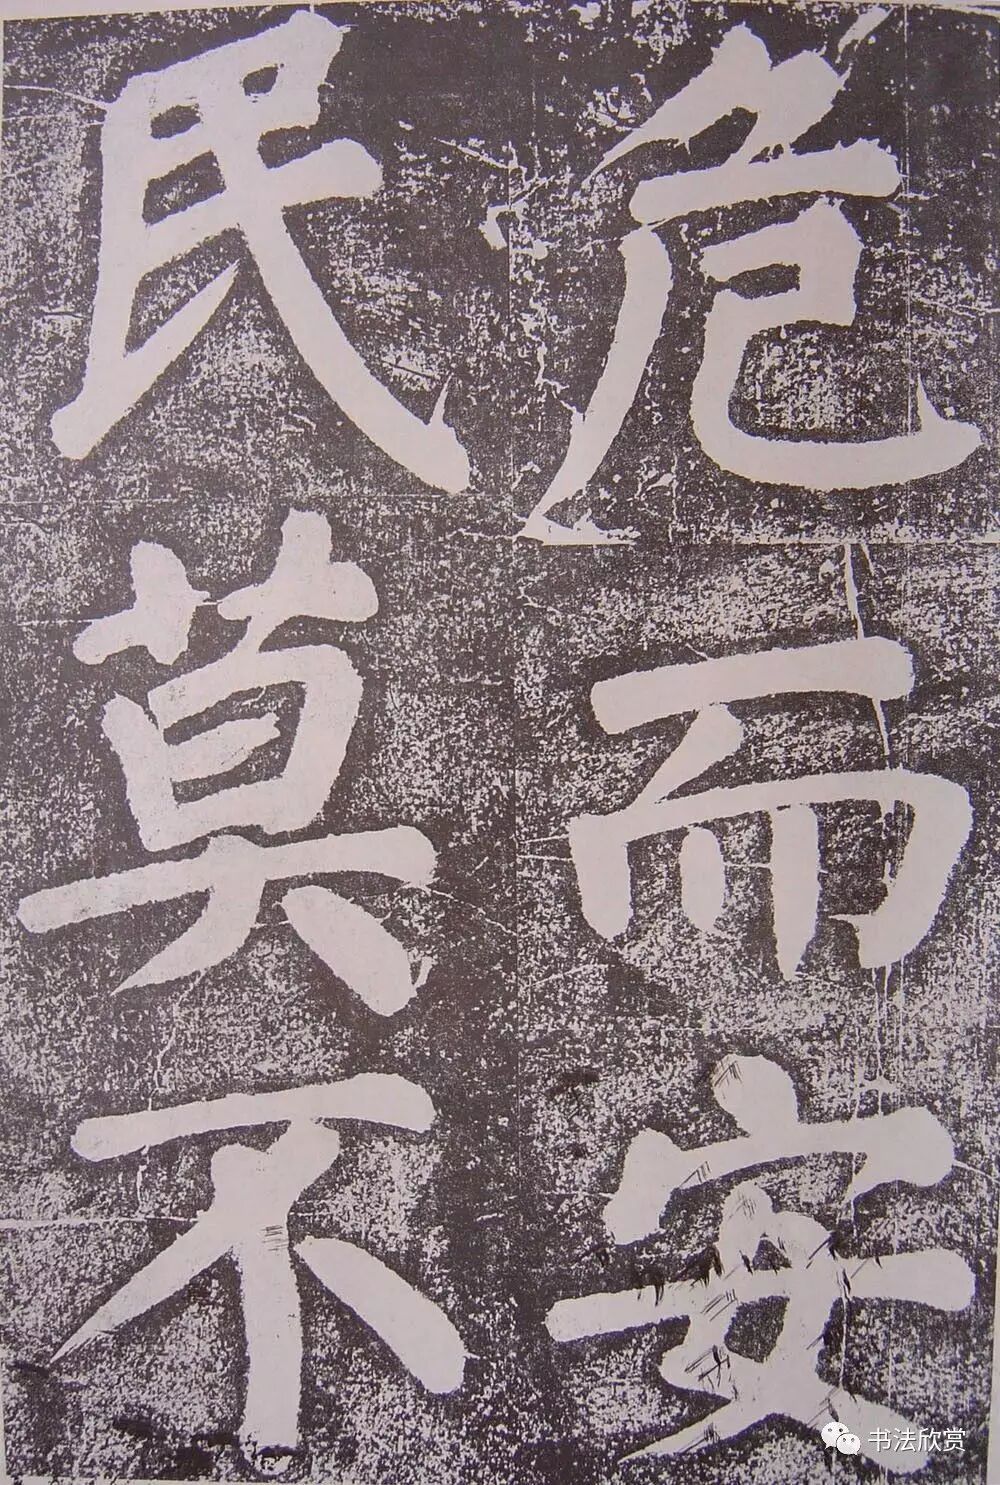 危而安
民莫不
书法欣赏